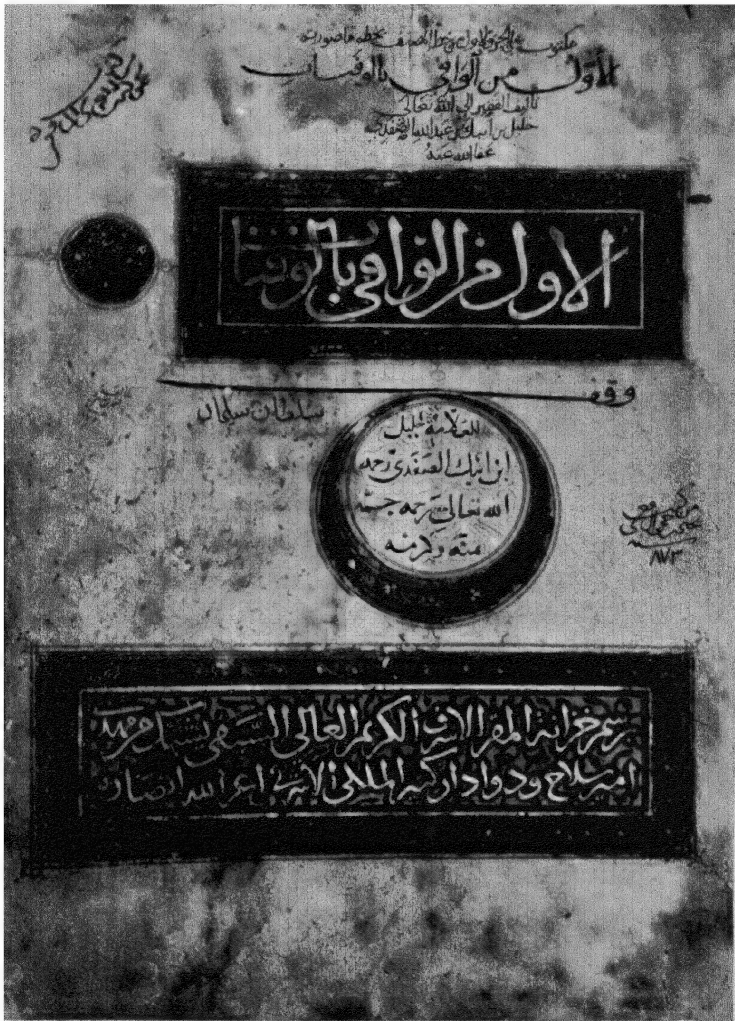 مكتوب على الجزء الاول بخط المصنف بخطه ما صورته
الأول من الوافي بالوفيات
تأليف الفقير الى الله تعالى
خليل بن أيبك بن عبد الله الصفدي
عفا الله عنه
الاول من الوافي بالوفيات
وقف
سلطان سليمان
للعلامة خليل
ابن ايبك الصفدي رحمه
الله تعالى برحمه جسيمه
منه وكرمه
٨٧٣
برسم خزانة المقر الاشرف الكريم العالي السيفي يشبك من مهدي
امير سلاح ودوادار كبير الملكي الاشرفي اعز الله انصاره